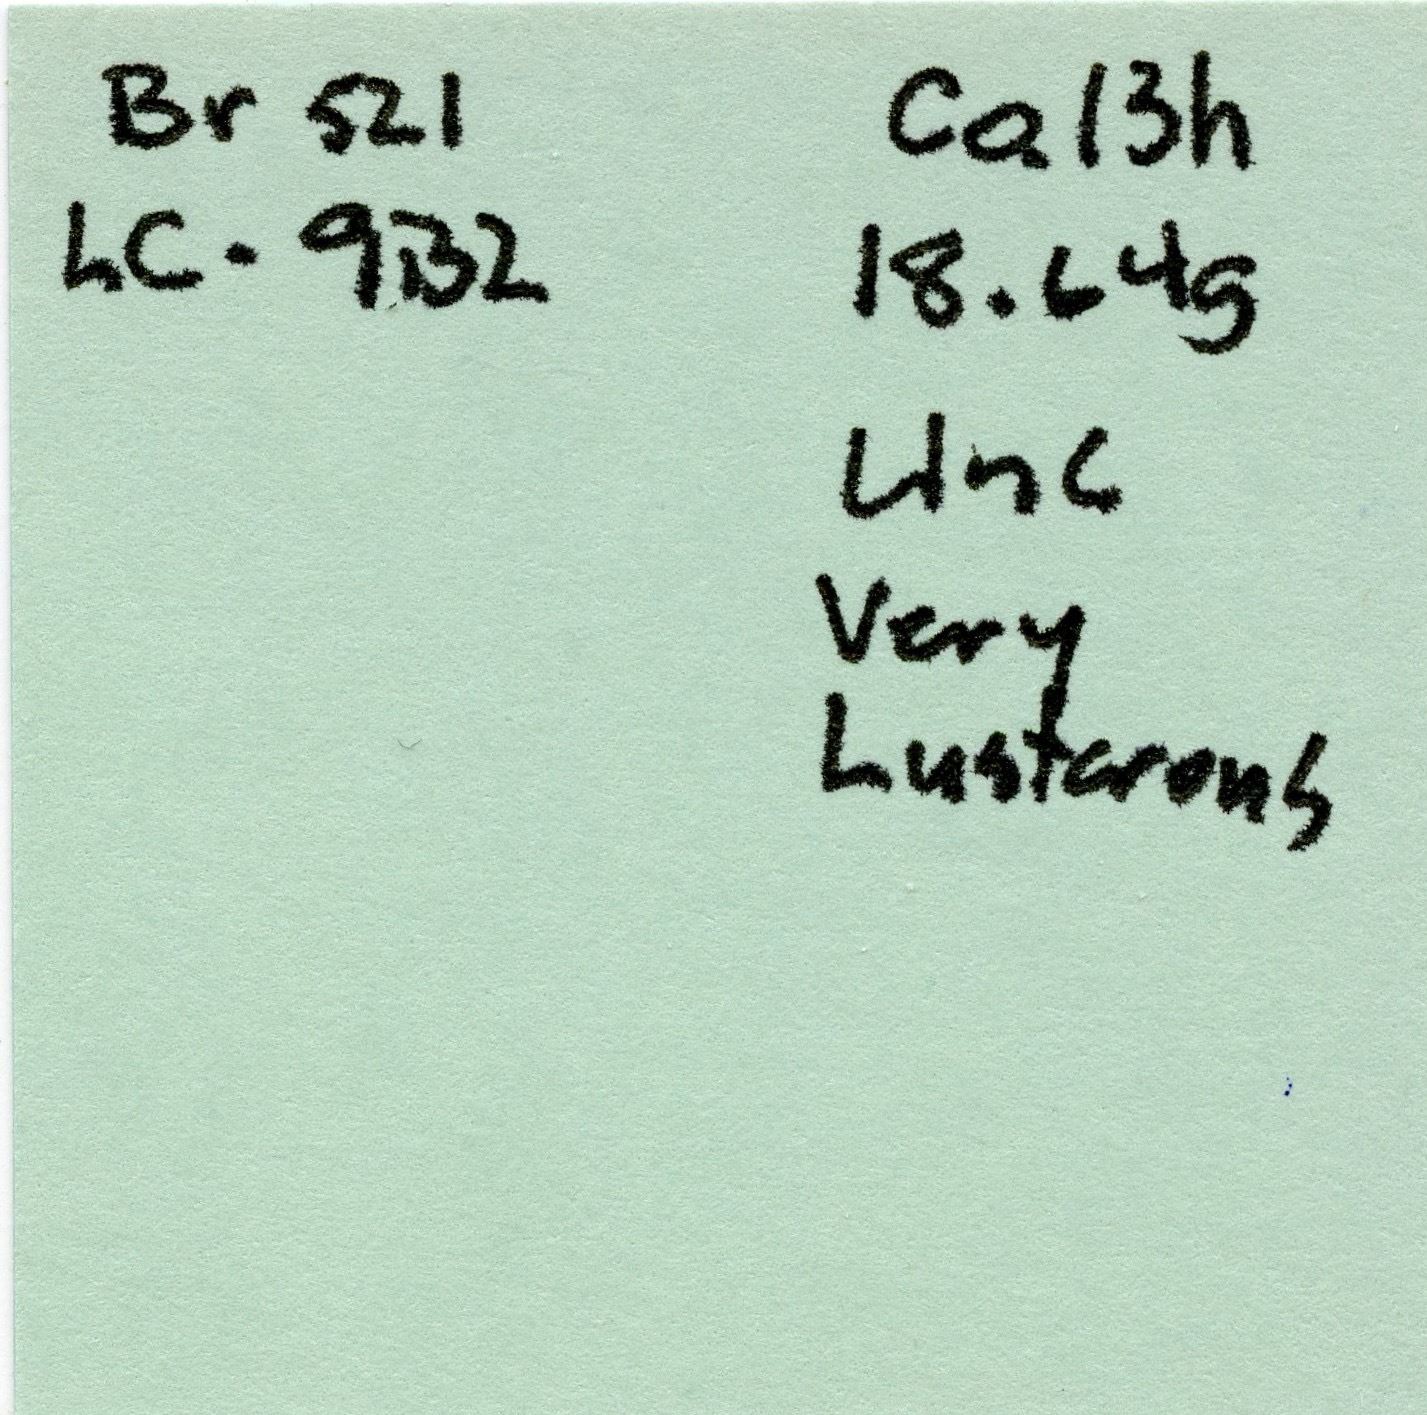 Br 521
LC. 9B2
Ca 13h
18.64g
Unc
Very
Lusterous